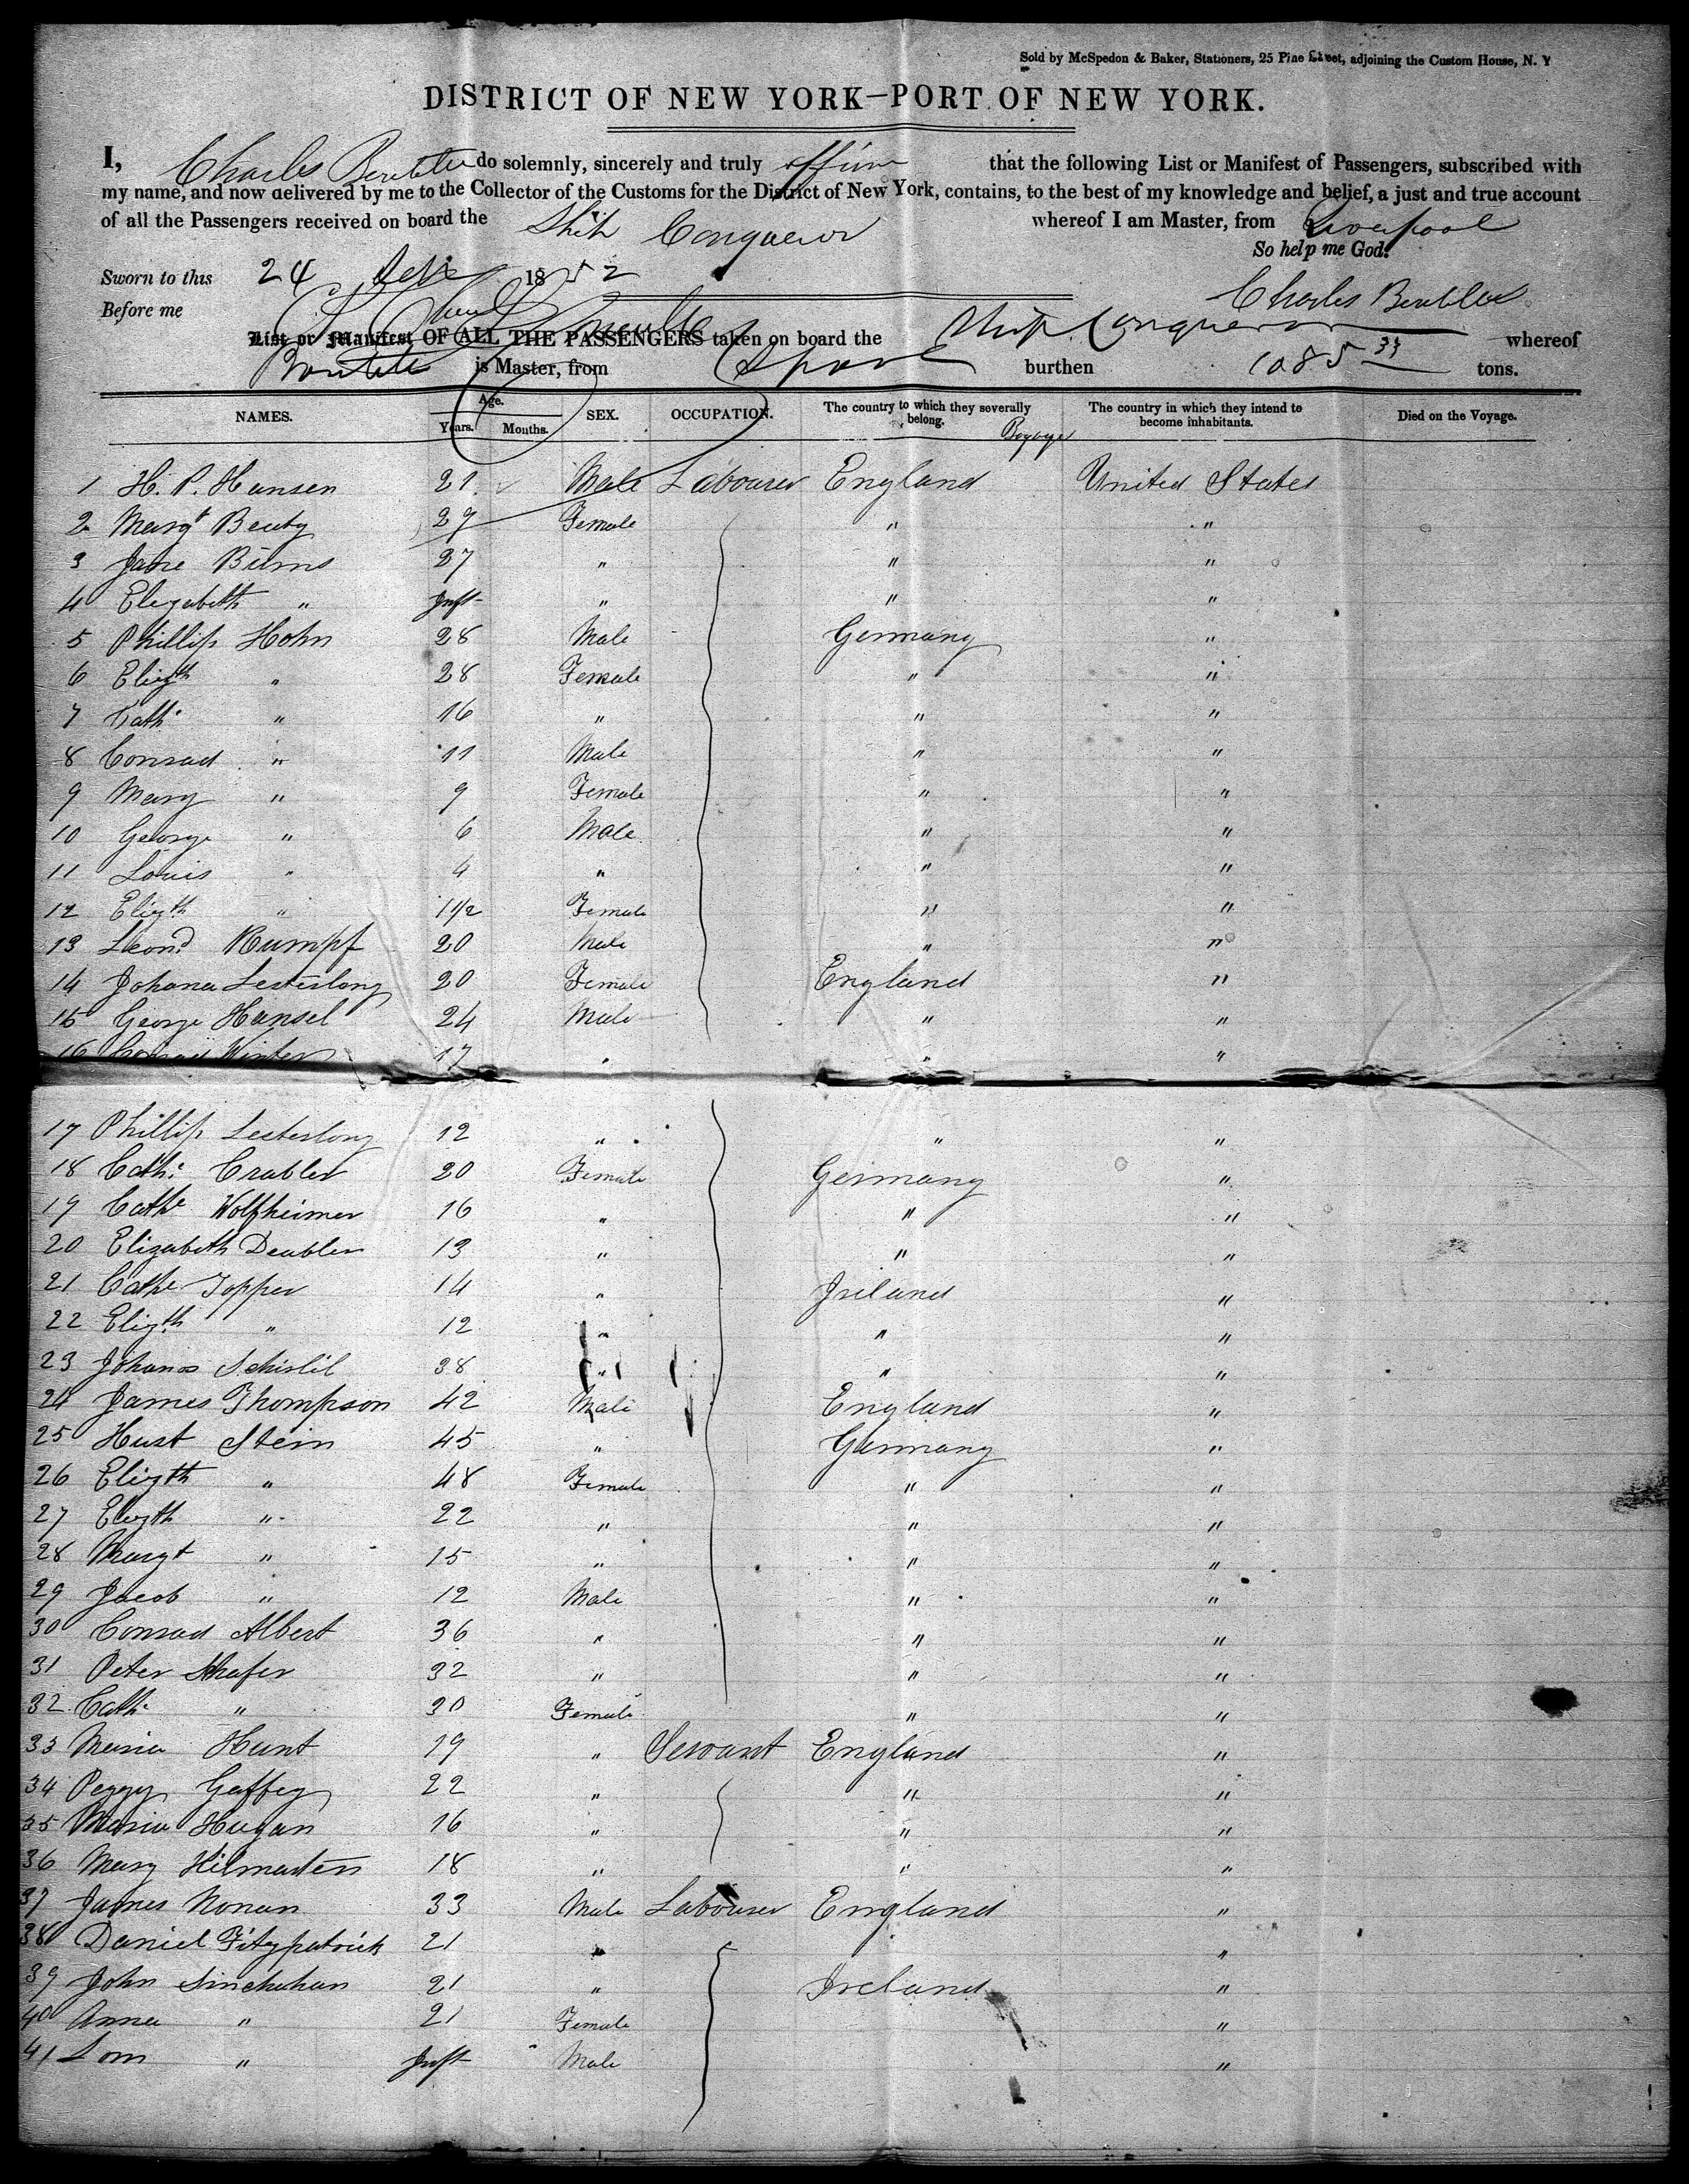 Sold by McSpedon & Baker, Stationers, 25 Pine Street, adjoining the Custom House, N. Y
DISTRICT OF NEW YORK—PORT OF NEW YORK.
I, Charles do solemnly, sincerely and truly affirm that the following List or Manifest of Passengers, subscribed with
my name, and now delivered by me to the Collector of the Customs for the District of New York, contains, to the best of my knowledge and belief, a just and true account
of all the Passengers received on board the Ship Conqueror whereof I am Master, from Liverpool
So help me God.
Sworn to this 24 1852
Before me Charles
List or Manifest OF ALL THE PASSENGERS taken on board the Ship Conqueror whereof
is Master, from burthen 1085 tons.
NAMES. Age. Years. Months. SEX. OCCUPATION. The country to which they severally belong. The country in which they intend to become inhabitants. Died on the Voyage.
1 H. P. Hansen 21 Male Labourer England United States
2 Margt Beuty 27 Female " "
3 Jane Birns 27 " " "
4 Elizabeth " Inft " " "
5 Phillip Hohn 28 Male Germany "
6 Elizth " 28 Female " "
7 Cath. " 16 " " "
8 Conrad " 11 Male " "
9 Mary " 9 Female " "
10 George " 6 Male " "
11 Louis " 4 " " "
12 Elizth " 1 1/2 Female " "
13 Leond Rumpf 20 Male " "
14 Johana Lesterlong 20 Female England "
15 George Hansel 24 Male " "
16 Conrad Winter 17 " " "
17 Phillip Lesterlong 12 " " "
18 Cath. Crabler 20 Female Germany "
19 Cathe Wolfheimer 16 " " "
20 Elizabeth Deubler 13 " " "
21 Cathe Topper 14 " Ireland "
22 Elizth " 12 " " "
23 Johanas 38 " " "
24 James Thompson 42 Male England "
25 Hust Stein 45 " Germany "
26 Elizth " 48 Female " "
27 Elizth " 22 " " "
28 Margt " 15 " " "
29 Jacob " 12 Male " "
30 Conrad Albert 36 " " "
31 Peter Shafer 32 " " "
32 Cath. " 30 Female " "
33 Maria Hunt 19 " Servant England "
34 Peggy Gaffey 22 " " "
35 Maria Hugan 16 " " "
36 Mary Kilmarten 18 " " "
37 James Nonan 33 Male Labourer England "
38 Daniel Fitzpatrick 21 " "
39 John Linehahan 21 " Ireland "
40 Anna " 21 Female "
41 " Inft " Male "